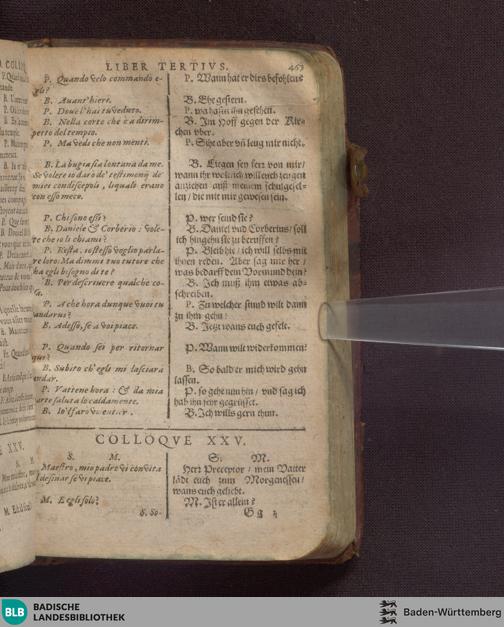 LIBER TERTIVS. 469
P. Quando velo commando e-
gli?
B. Auant'hieri.
P. Doue l'hai tu veduto.
B. Nella corte che è a dirim-
petto del tempio.
P. Ma vedi che non menti.
B. La bugia sia lontana da me.
Se volete io darò de' testimonij de'
miei condiscepoli, liquali erano
con esso meco.
P. Chi sono essi?
B. Daniele & Corberio: vole-
te che io li chiami?
P. Resta, io stesso voglio parla-
re loro. Ma dimmi tuo tutore che
ha egli bisogno di te?
B. Per descriuere qualche co-
sa.
P. A che hora dunque vuoi tu
andarui?
B. Adesso, se a voi piace.
P. Quando sei per ritornar
qui?
B. Subito ch'egli mi lasciarà
andar.
P. Vattene hora: & da mia
parte saluta lo caldamente.
B. Io'l farò
P. Wann hat er dies befohlen?
B. Ehegestern.
P. wa hastu ihn gesehen.
B. Im Hoff gegen der Kir-
chen vber.
P. Sihe aber du leug mir nicht.
B. Liegen sey ferr von mir/
wann ihr wolt ich will euch zeugen
anziehen auß meinem schulgesel-
len/ die mit mir gewesen sein.
P. wer seind sie?
B. Daniel vnd Corberius/ soll
ich hingehn sie zu beruffen?
P. Bleib hie/ ich will selbs mit
ihnen reden. Aber sag mir her/
was bedarff dein Vormund dein?
B. Ich muß ihm etwas ab-
schreiben.
P. Zu welcher stund wilt dann
zu ihm gehn?
B. Jetzt wans euch gefelt.
P. Wann wilt widerkommen?
B. So bald er mich wird gehn
lassen.
P. so gehe nun hin/ vnd sag ich
hab ihn sehr gegrüsset.
B. Ich wills gern thun.
COLLOQVE XXV.
S. M.
Maestro, mio padre vi conuita
a desinar se vi piace.
M. E egli solo?
S. So-
S. M.
Herr Preceptor/ mein Vatter
lädt euch zum Morgenessen/
wans euch geliebt.
M. Ist er allein?
Gg 4
BLB
BADISCHE
LANDESBIBLIOTHEK
Baden-Württemberg